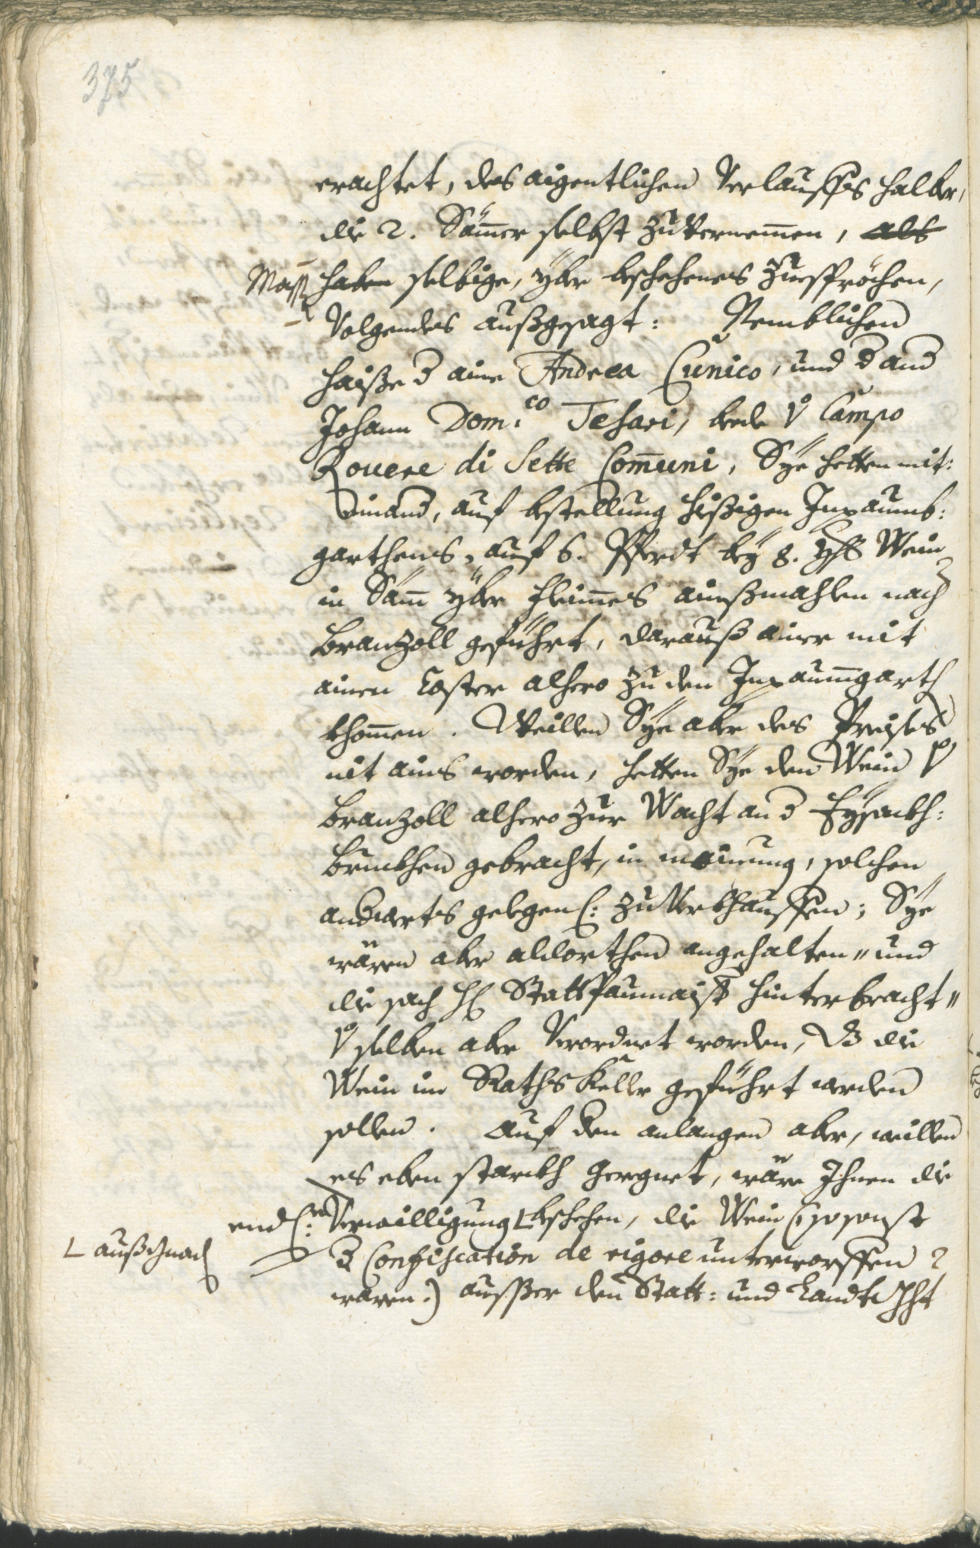 375
erachtet, des aigentlichen Verlauffs halber,
die 2. Sämer selbst zuvernemmen, als
Mass haben selbige, yber beschehenes zuesprechen,
Volgendes außgesagt: Nemblichen
haiße d aine Andrea Cunico, und d and
Johann Dom:co Tesari, bede v Campo
Rovere di Sette Com̃uni, Sye hetten mit:
einand, auf bestellung hießigen Inpaumb:
garthens, auf 6. Pferdt bey 8. Yhrn Wein
in Sām yber Fleimes ainßmahlen nach
Branzoll geführt, darauß ainer mit
ainen Coster alhero zu den Inpaumgarth
khom̃en. Weillen Sye aber des Preises
nit ains worden, hetten Sye den Wein v
Branzoll alhero zur Wacht an d Eysackh:
Pruckhen gebracht, in mainung, solchen
andwerts gelegen: zuverkhauffen; Sye
wären aber aldorthen angehalten, und
die sach H Stattpaumaist hinterbracht,
v selben aber Verordnet worden, dz die
Wein in RathsKeller geführt werden
sollen. Auf den anlangen aber, weillen
es eben starckh geregnet, wäre Ihnen die
Verwilligung L beschehen, die Wein (so sonst
L außhnach
d Confiscation de rigore unterworffen
waren.) ausser den Statt: und Landt